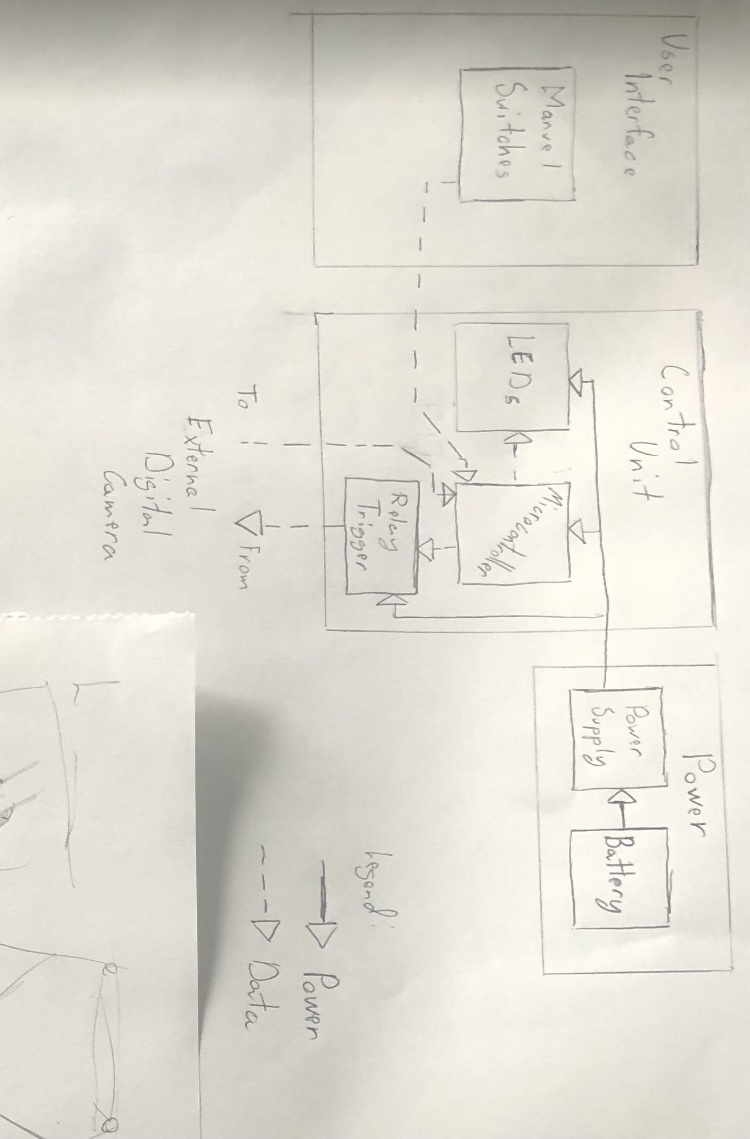 User
Interface
Manual
Switches
Control
Unit
LEDs
Microcontroller
Relay
Trigger
To
From
External
Digital
Camera
Power
Power
Supply
Battery
Legend:
Power
Data